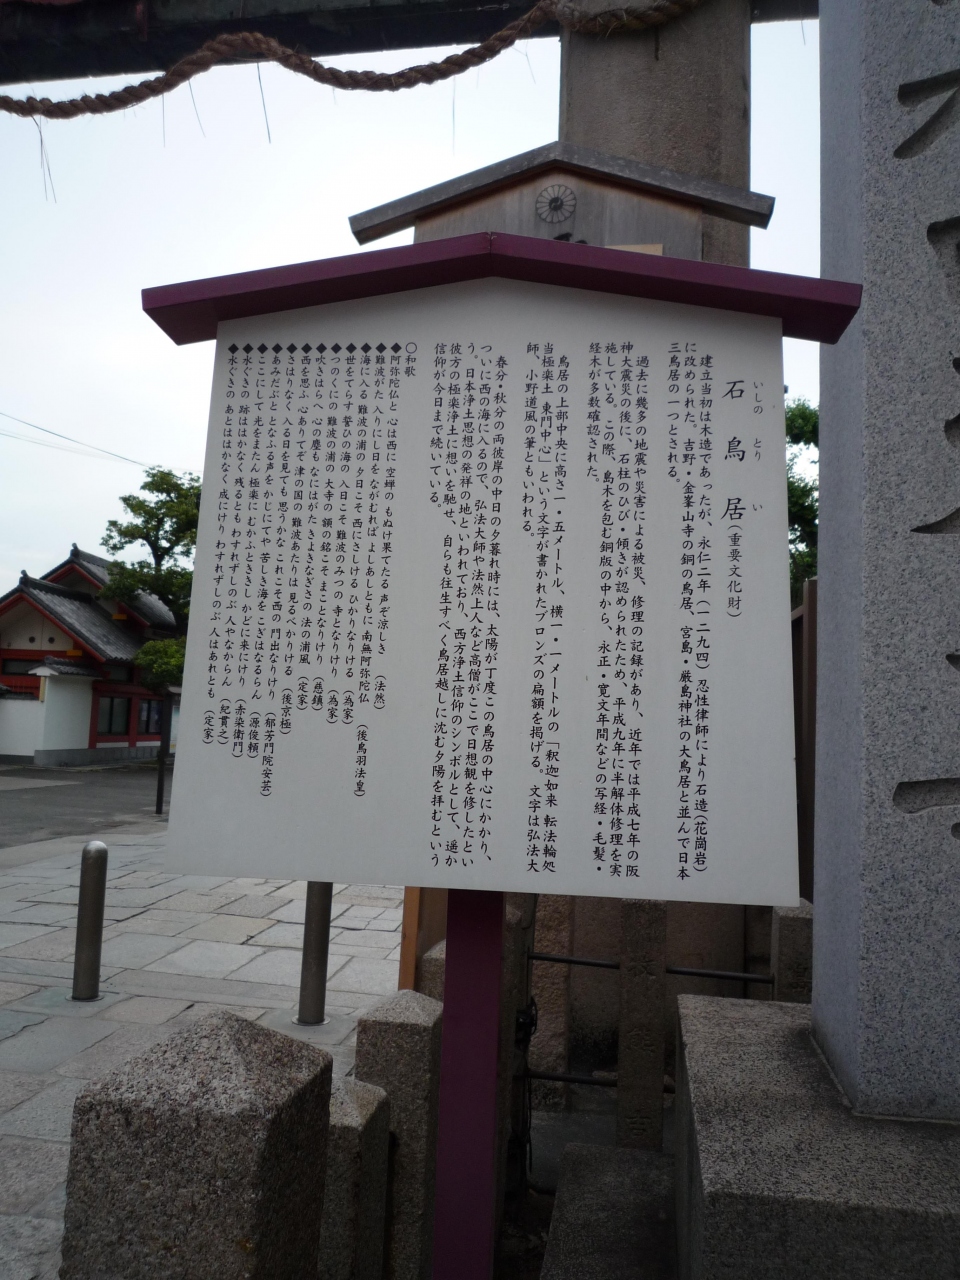 石鳥居(重要文化財)
いしの とり い
建立当初は木造であったが、永仁二年(一二九四)忍性律師により石造(花崗岩)
に改められた。吉野・金峯山寺の銅の鳥居、宮島・厳島神社の大鳥居と並んで日本
三鳥居の一つとされる。
過去に幾多の地震や災害による被災、修理の記録があり、近年では平成七年の阪
神大震災の後に、石柱のひび・傾きが認められたため、平成九年に半解体修理を実
施している。この際、島木を包む銅版の中から、永正・寛文年間などの写経・毛髪・
経木が多数確認された。
鳥居の上部中央に高さ一・五メートル、横一・一メートルの「釈迦如来 転法輪処
当極楽土 東門中心」という文字が書かれたブロンズの扁額を掲げる。文字は弘法大
師、小野道風の筆ともいわれる。
春分・秋分の両彼岸の中日の夕暮れ時には、太陽が丁度この鳥居の中心にかかり、
ついに西の海に入るので、弘法大師や法然上人など高僧がここで日想観を修したとい
う。日本浄土思想の発祥の地といわれており、西方浄土信仰のシンボルとして、遥か
彼方の極楽浄土に想いを馳せ、自らも往生すべく鳥居越しに沈む夕陽を拝むという
信仰が今日まで続いている。
〇和歌
◆阿弥陀仏と 心は西に 空蝉の もぬけ果てたる 声ぞ涼しき (法然)
◆難波がた 入りにし日を ながむれば よしあしともに 南無阿弥陀仏 (後鳥羽法皇)
◆海に入る 難波の浦の 夕日こそ 西にさしける ひかりなりける (為家)
◆世をてらす 誓ひの海の 入日こそ 難波のみつの 寺となりけり (為家)
◆つのくにの 難波の浦の 大寺の 額の銘こそ まことなりけり (慈鎮)
◆吹きはらへ 心の塵も なにはがた きよきなぎさの 法の浦風 (定家)
◆西を思ふ 心ありてぞ 津の国の 難波あたりは 見るべかりける (後京極)
◆さはりなく 入る日を見ても 思うかな これこそ西の 門出なりけり (郁芳門院安芸)
◆あみだぶと となふる声を かじにてや 苦しき海を こぎはなるらん (源俊頼)
◆ここにして 光をまたん 極楽に むかふとききし かどに来にけり (赤染衛門)
◆水ぐきの 跡ははかなく 残るとも わすれずしのぶ 人やなからん (紀貫之)
◆水ぐきの あとははかなく 成にけり わすれずしのぶ 人はあれとも (定家)